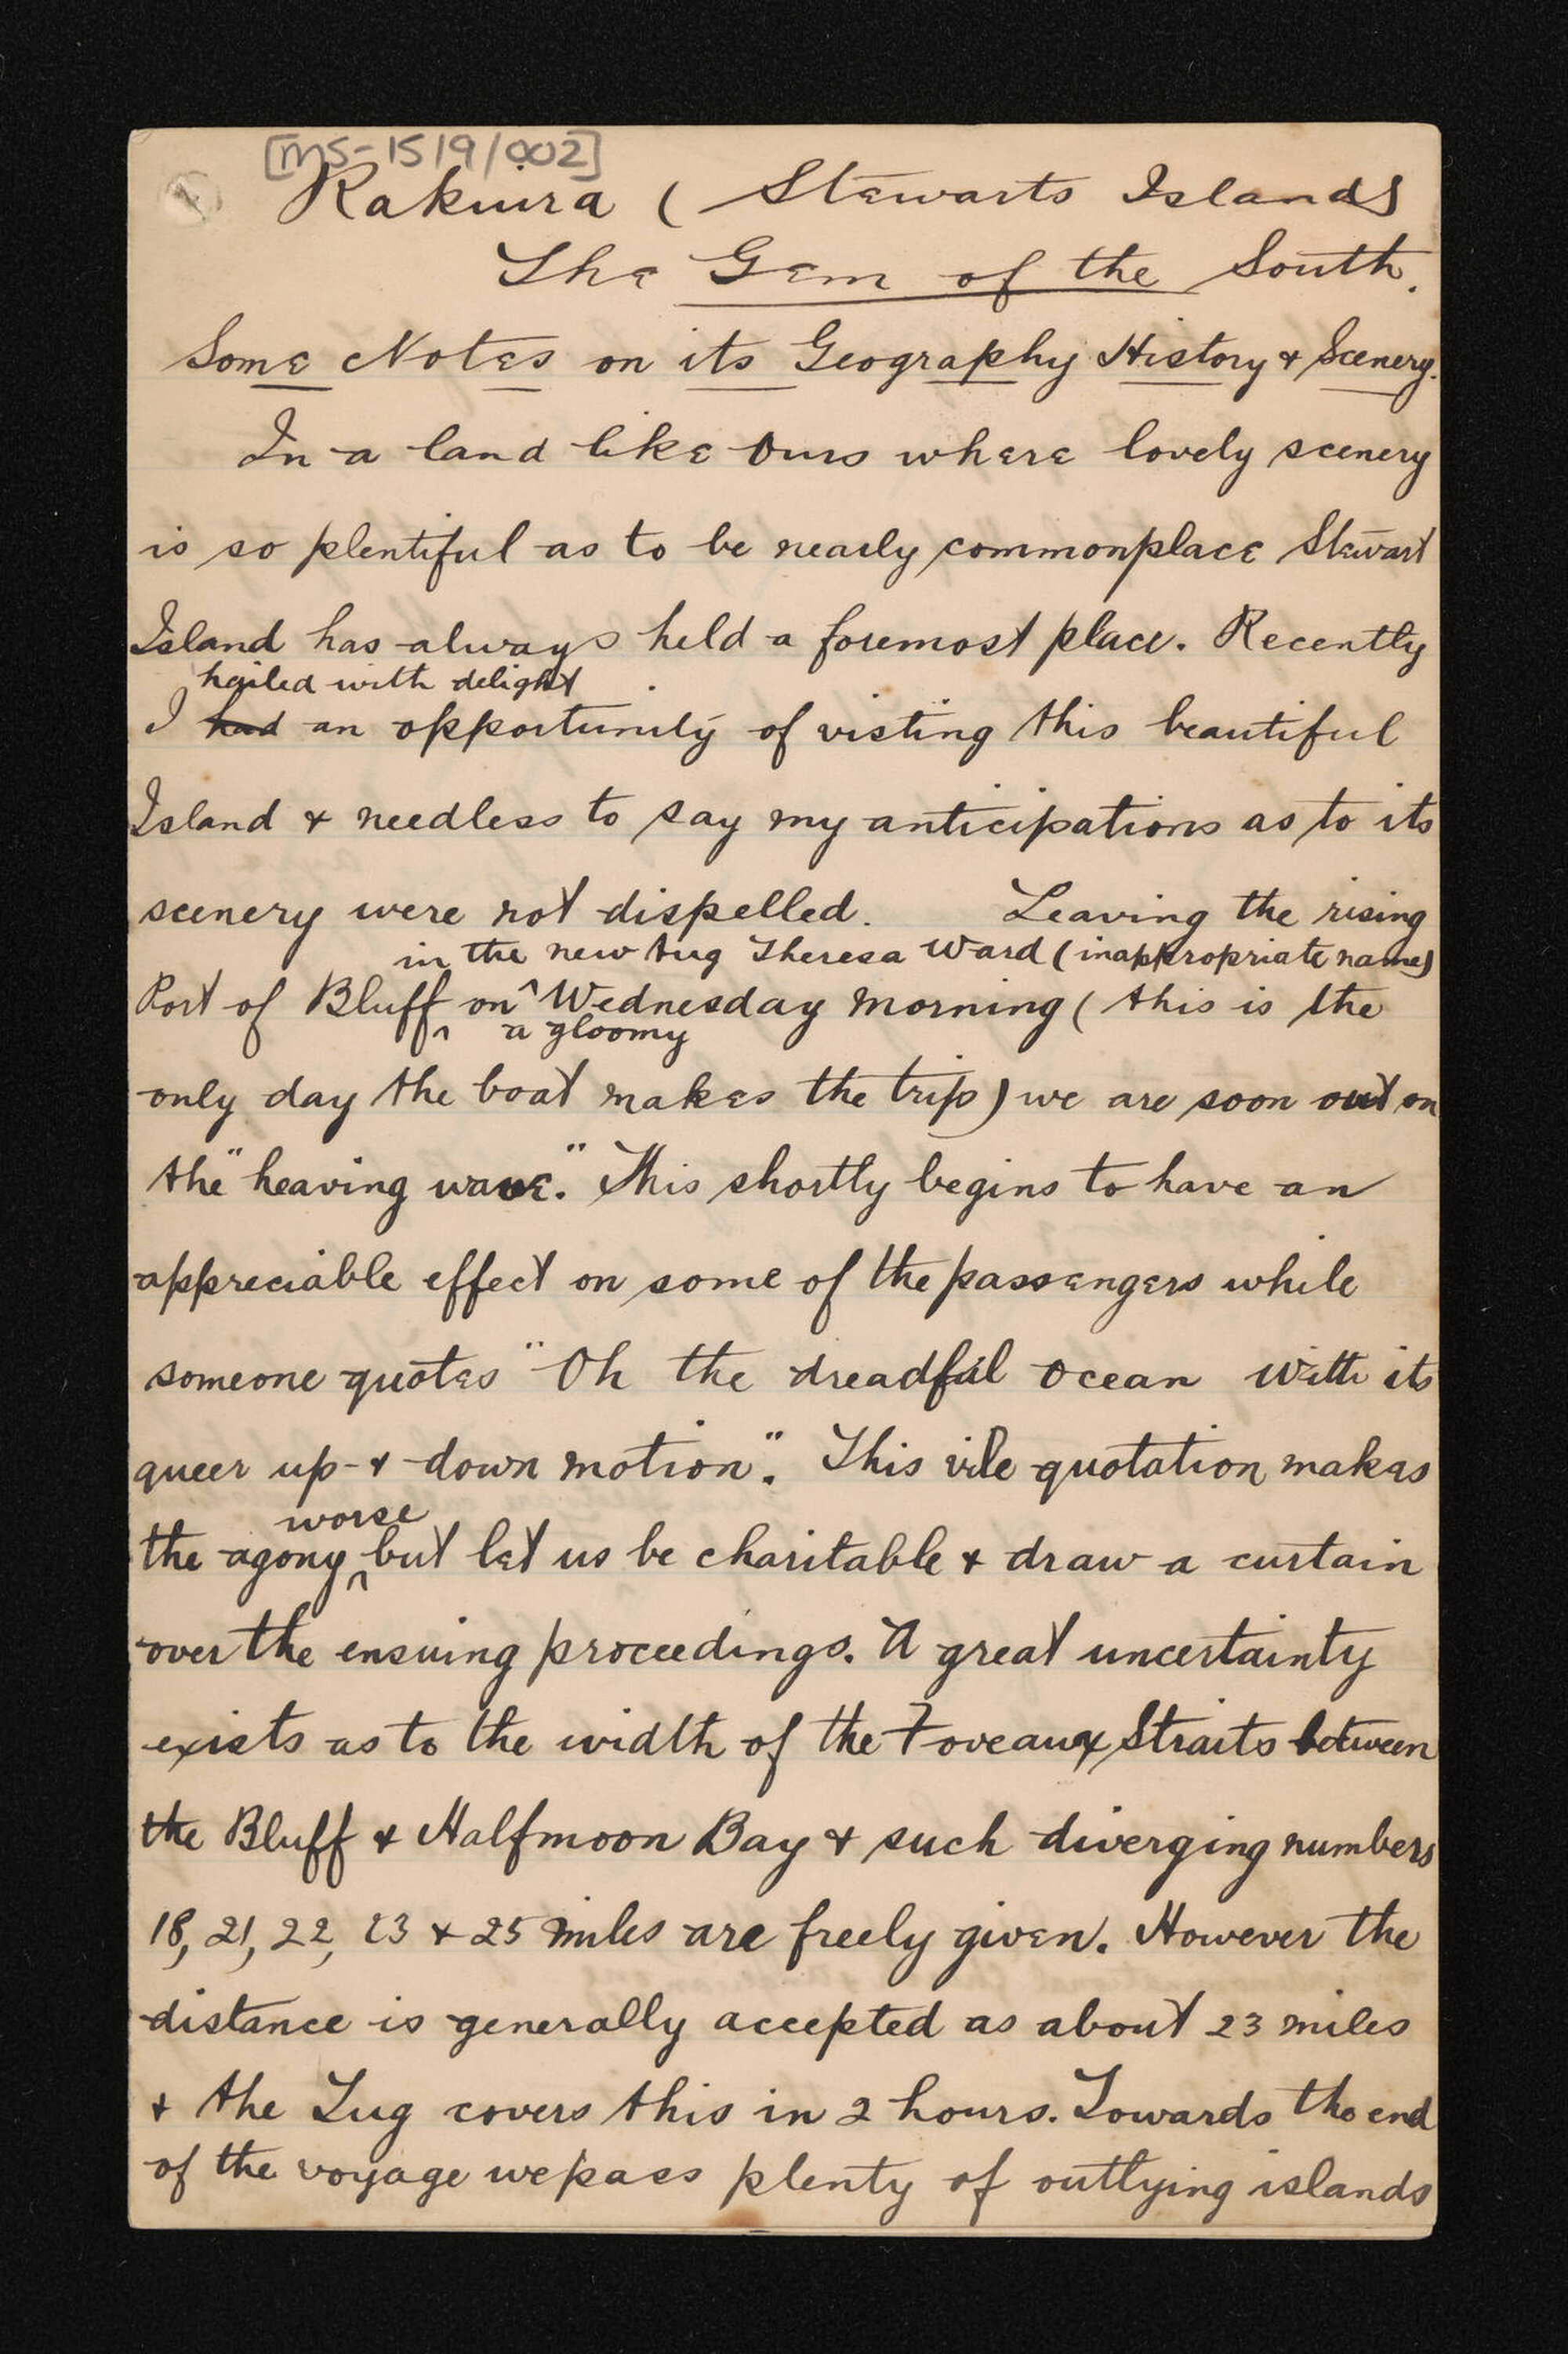 [MS-1519/002]
Rakuira ( Stewarts Island)
The Gem of the South.
Some Notes on its Geography History & Scenery.
In a land like Ours where lovely scenery
is so plentiful as to be nearly commonplace Stewart
Island has always held a foremost place. Recently
hailed with delight
I had an opportunity of visting this beautiful
Island & needless to say my anticipations as to its
scenery were not dispelled. Leaving the rising
in the new tug Theresa Ward (inappropriate name)
Port of Bluff on Wednesday morning ( this is the
a gloomy
only day the boat makes the trip) we are soon out on
the "heaving wave". This shortly begins to have an
appreciable effect on some of the passengers while
someone quotes "Oh the dreadful Ocean With its
queer up- & -down motion". This vile quotation makes
worse
the agony but let us be charitable & draw a curtain
over the ensuing proceedings. A great uncertainty
exists as to the width of the Foveaux Straits between
the Bluff & Halfmoon Bay & such diverging numbers
18, 21, 22, 23 & 25 miles are freely given. However the
distance is generally accepted as about 23 miles
& the Tug covers this in 2 hours. Towards the end
of the voyage we pass plenty of outlying islands